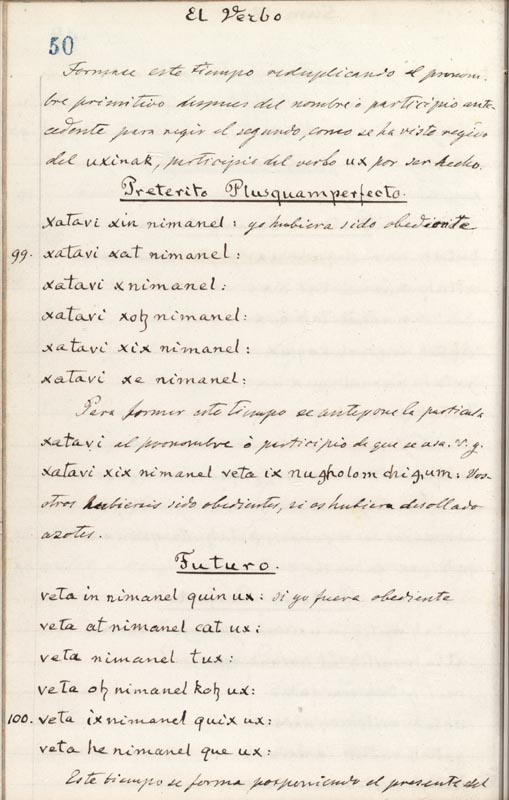 El Verbo
50
Formase este tiempo reduplicando el pronom-
bre primitivo despues del nombre ó participio ante-
cedente para regir el segundo, como se ha visto regido
del uxinak, participio del verbo ux por ser hecho.
Preterito Plusquamperfecto.
xatavi xin nimanel: yo hubiera sido obediente
99. xatavi xat nimanel:
xatavi xnimanel:
xatavi xoꜩ nimanel:
xatavi xix nimanel:
xatavi xe nimanel:
Para formar este tiempo se antepone la particula
xatavi al pronombre ò participio de que se usa. v. g.
xatavi xix nimanel veta ix nugholom chi
otros hubierais sido obedientes, si os hubiera desollado
azotes.
Futuro.
veta in nimanel quin ux: si yo fuera obediente
veta at nimanel cat ux:
veta nimanel tux:
veta oꜩ nimanel koꜩ ux:
100. veta ix nimanel quix ux:
veta he nimanel que ux:
Este tiempo se forma posponiendo el presente del